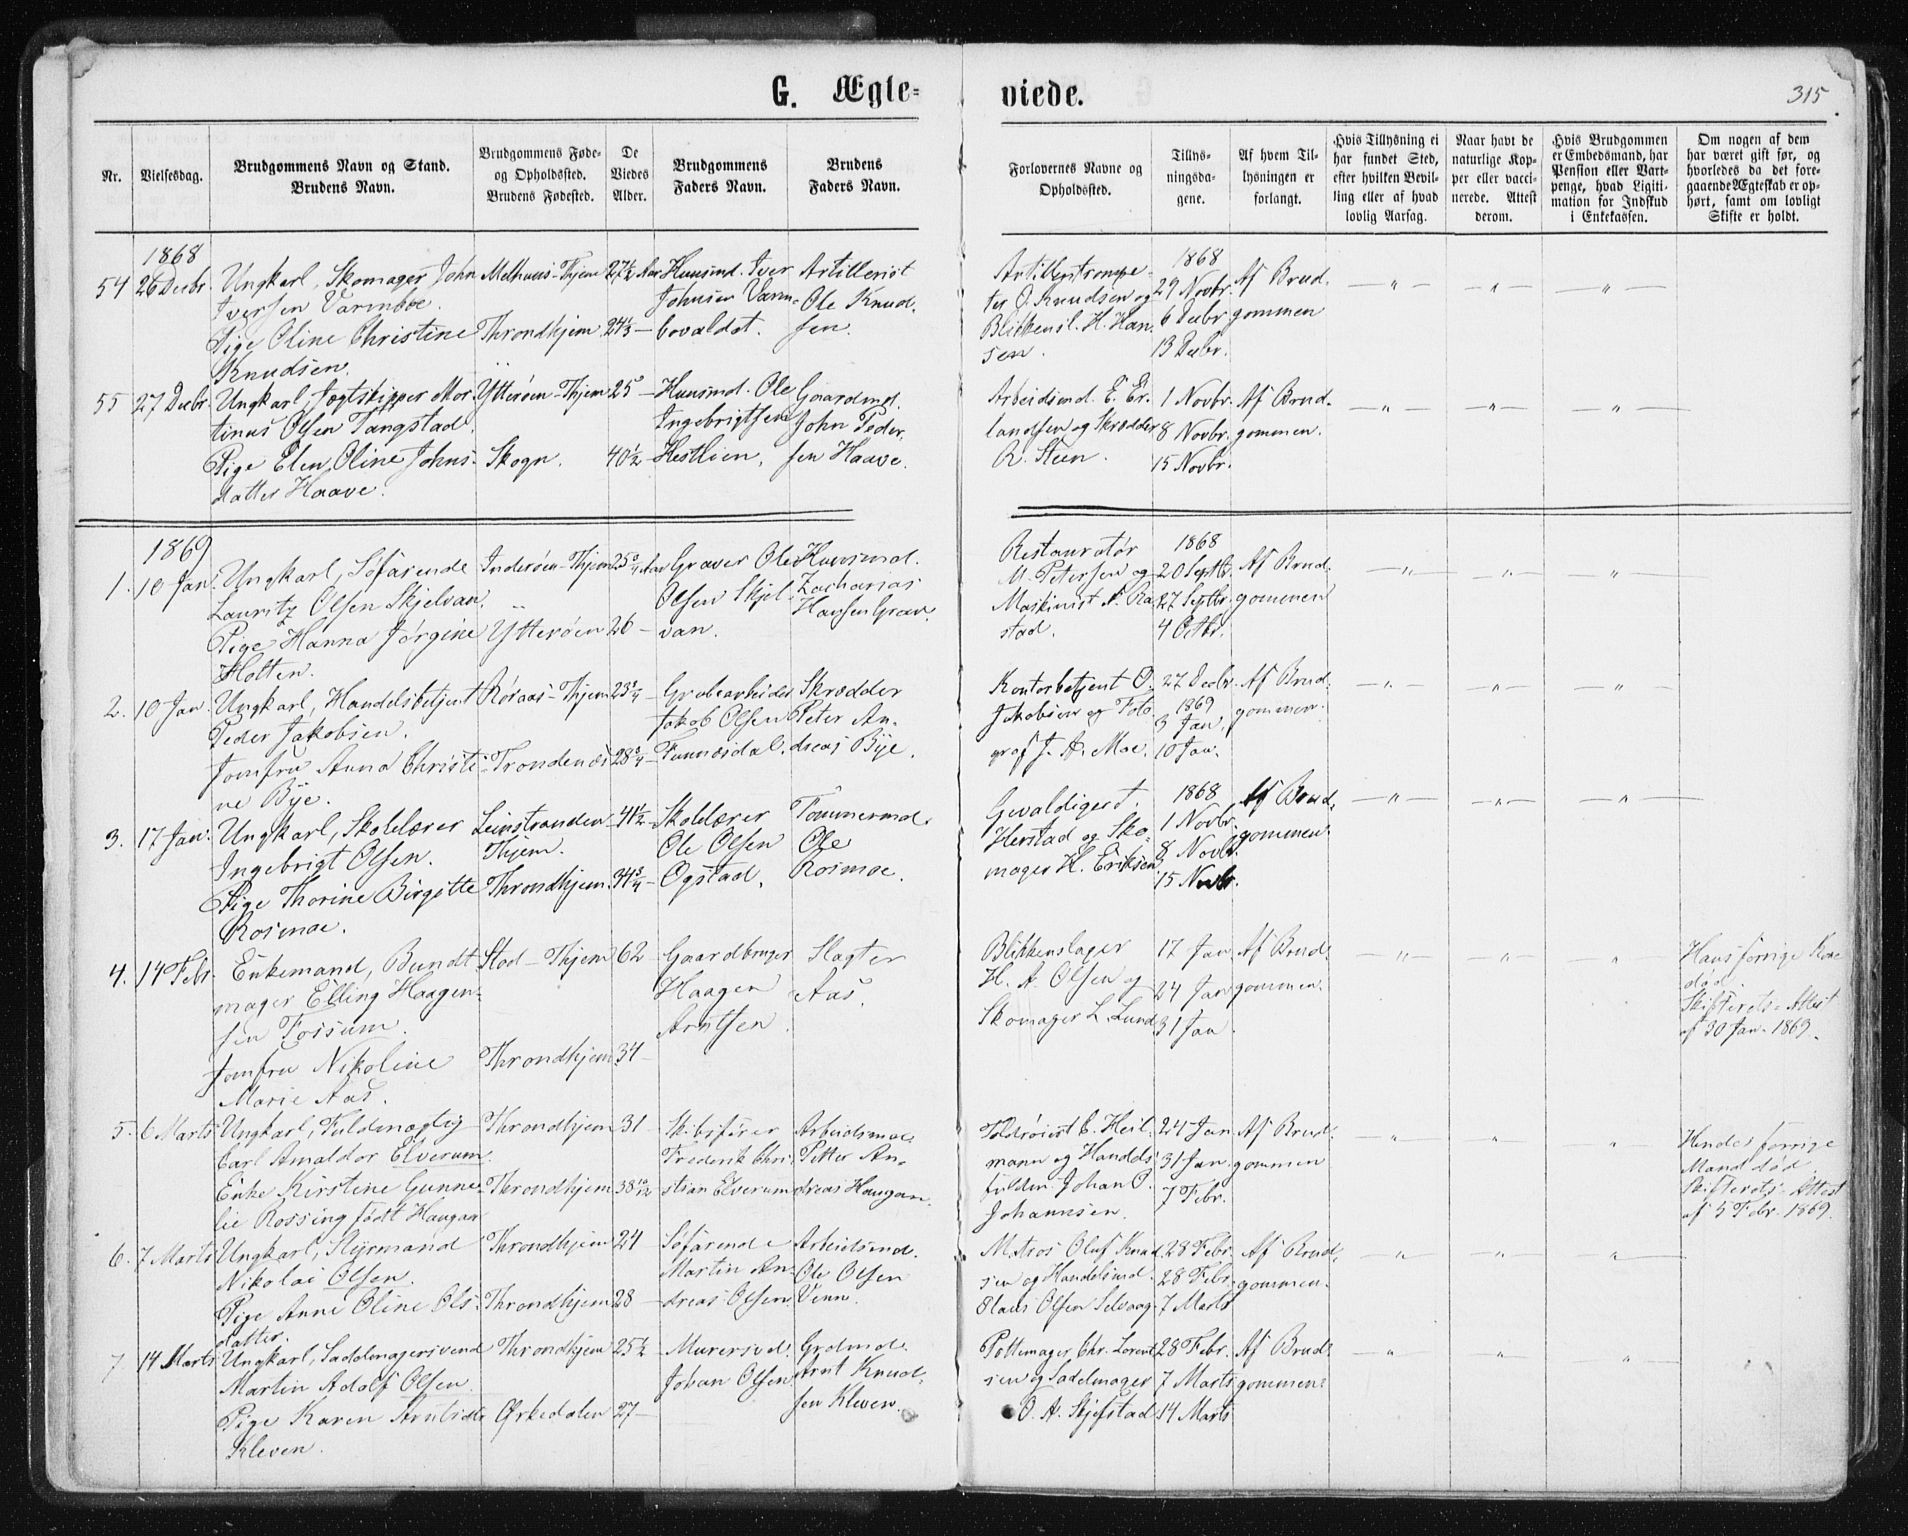 G. Ægte=
viede.
315
Nr.
Vielsesdag.
Brudgommens Navn og Stand.
Brudens Navn.
Brudgommens Føde-
og Opholdssted.
Brudens Fødested.
De
Viedes
Alder.
Brudgommens
Faders Navn.
Brudens
Faders Navn.
Forlovernes Navne og
Opholdssted.
Tillys-
ningsda-
gene.
Af hvem Til-
lysningen er
forlangt.
Hvis Tillysning ei
har fundet Sted,
efter hvilken Bevil-
ling eller af hvad
lovlig Aarsag.
Naar havt de
naturlige Kop-
per eller vacci-
nerede. Attest
derom.
Hvis Brudgommen
er Embedsmand, har
Pension eller Vart-
penge, hvad Ligiti-
mation for Indskud
i Enkekassen.
Om nogen af dem
har været gift før, og
hvorledes da det fore-
gaaende Ægteskab er op-
hørt, samt om lovligt
Skifte er holdt.
1868
54 26 Decbr.
Ungkarl, Skomager John
Iversen Varmboe.
Pige Oline Christine
Knudsen.
Melhuus - Thjem
Throndhjem
27½ Aar
24⅓ —
Huusmd. Iver
Johnsen Varm-
bovaldet.
Artillerist
Ole Knud-
sen.
Artilleritrompe-
ter O. Knudsen og
Blikkensl. H. Han-
sen.
1868
29 Novbr.
6 Decbr.
13 Decbr.
Af Brud-
gommen
— " — — " — — " —
55 27 Decbr.
Ungkarl, Jægtskipper Mor-
tinus Olsen Tangstad.
Pige Elen Oline Johns-
datter Haave.
Ytterøen - Thjem
Skogn.
25
40½ —
Huusmd. Ole
Ingebrigtsen
Hestlien.
Gaardmd.
John Peder-
sen Haave.
Arbeidsmd. E. Er-
landsen og Skrædder
R. Steen.
1 Novbr.
8 Novbr.
15 Novbr.
Af Brud-
gommen.
— " — — " — — " —
1869
1. 10 Jan.
Ungkarl, Söfarende
Lauritz Olsen Skjelvan.
Pige Hanna Jørgine
Holten.
Inderøen - Thjem
Ytterøen
25¾ Aar
26 —
Graver Ole
Olsen Skjel-
van.
Huusmd.
Zacharias
Hansen Grav.
Restauratør
M. Petersen og
Maskinist N. Ra-
stad.
1868
20 Septbr.
27 Septbr.
4 Octbr.
Af Brud-
gommen
— " — — " — — " —
2. 10 Jan.
Ungkarl, Handelsbetjent
Peder Jakobsen.
Jomfru Anna Christi-
ne Bye.
Røraas - Thjem
Trondenæs
23¾ —
28¾ —
Grubearbeider
Jakob Olsen
Funnesdal.
Skrædder
Peter An-
dreas Bye.
Kontorbetjent O.
Jakobsen og Foto-
graf J. A. Moe.
27 Decbr.
1869
3 Jan.
10 Jan.
Af Brud-
gommen.
— " — — " — — " —
3. 17 Jan.
Ungkarl, Skolelærer
Ingebrigt Olsen.
Pige Thorine Birgitte
Rosmoe.
Leinstranden
Thjem.
Throndhjem.
41½ —
34¾ —
Skolelærer
Ole Olsen
Ogstad.
Tømmermd.
Ole
Rosmoe.
Gevaldigert.
Herstad og Sko-
mager H. Eriksen
1868
1 Novbr.
8 Novbr.
15 Novbr.
Af Brud-
gommen.
— " — — " — — " —
4. 14 Febr.
Enkemand, Bundt-
mager Elling Haagen-
sen Fossum.
Jomfru Nikoline
Marie Aas.
Stod - Thjem
Throndhjem
62 —
34 —
Gaardbruger
Haagen
Arntsen.
Slagter
Aas.
Blikkenslager
H. A. Olsen og
Skomager L. Lund
17 Jan
24 Jan
31 Jan.
Af Brud-
gommen.
— " — — " — — " —
Hans forrige Kone
død.
Skifterets-Attest
af 30 Jan. 1869.
5. 6 Marts
Ungkarl, Fuldmægtig
Carl Amaldor Elverum.
Enke Kirstine Gunne-
lie Rossing født Haugan
Throndhjem
Throndhjem
31 —
38 10/12
Skibsfører
Frederik Chri-
stian Elverum
Arbeidsmd.
Petter An-
dreas Haugan.
Toldroiest E. Heil-
mann og Handels-
fuldm. Johan P.
Johannsen.
24 Jan
31 Jan.
7 Febr.
Af Brud-
gommen
— " — — " — — " —
Hendes forrige
Mand død.
Skifterets-Attest
af 5 Febr. 1869.
6. 7 Marts
Ungkarl, Styrmand
Nikolai Olsen.
Pige Anne Oline Ols-
datter.
Throndhjem
Throndhjem
24
28 —
Søfarende
Martin An-
dreas Olsen
Arbeidsmd.
Ole Olsen
Venn.
Matros Oluf Knud-
sen og Handelsmd.
Claus Olsen Selvaag.
28 Febr.
28 Febr.
7 Marts
Af Brud-
gommen.
— " — — " — — " —
7. 14 Marts
Ungkarl, Saddelmagersvend
Martin Adolf Olsen.
Pige Karen Arntsdtr
Kleven.
Throndhjem
Ørkedalen
25½ —
27 —
Murersvd.
Johan Olsen
Grdmd.
Arnt Knud-
sen Kleven.
Pottemager Chr. Lorent-
sen og Sadelmager
O. A. Stjefstad
28 Febr.
7 Marts
14 Marts
Af Brud-
gommen.
— " — — " — — " —